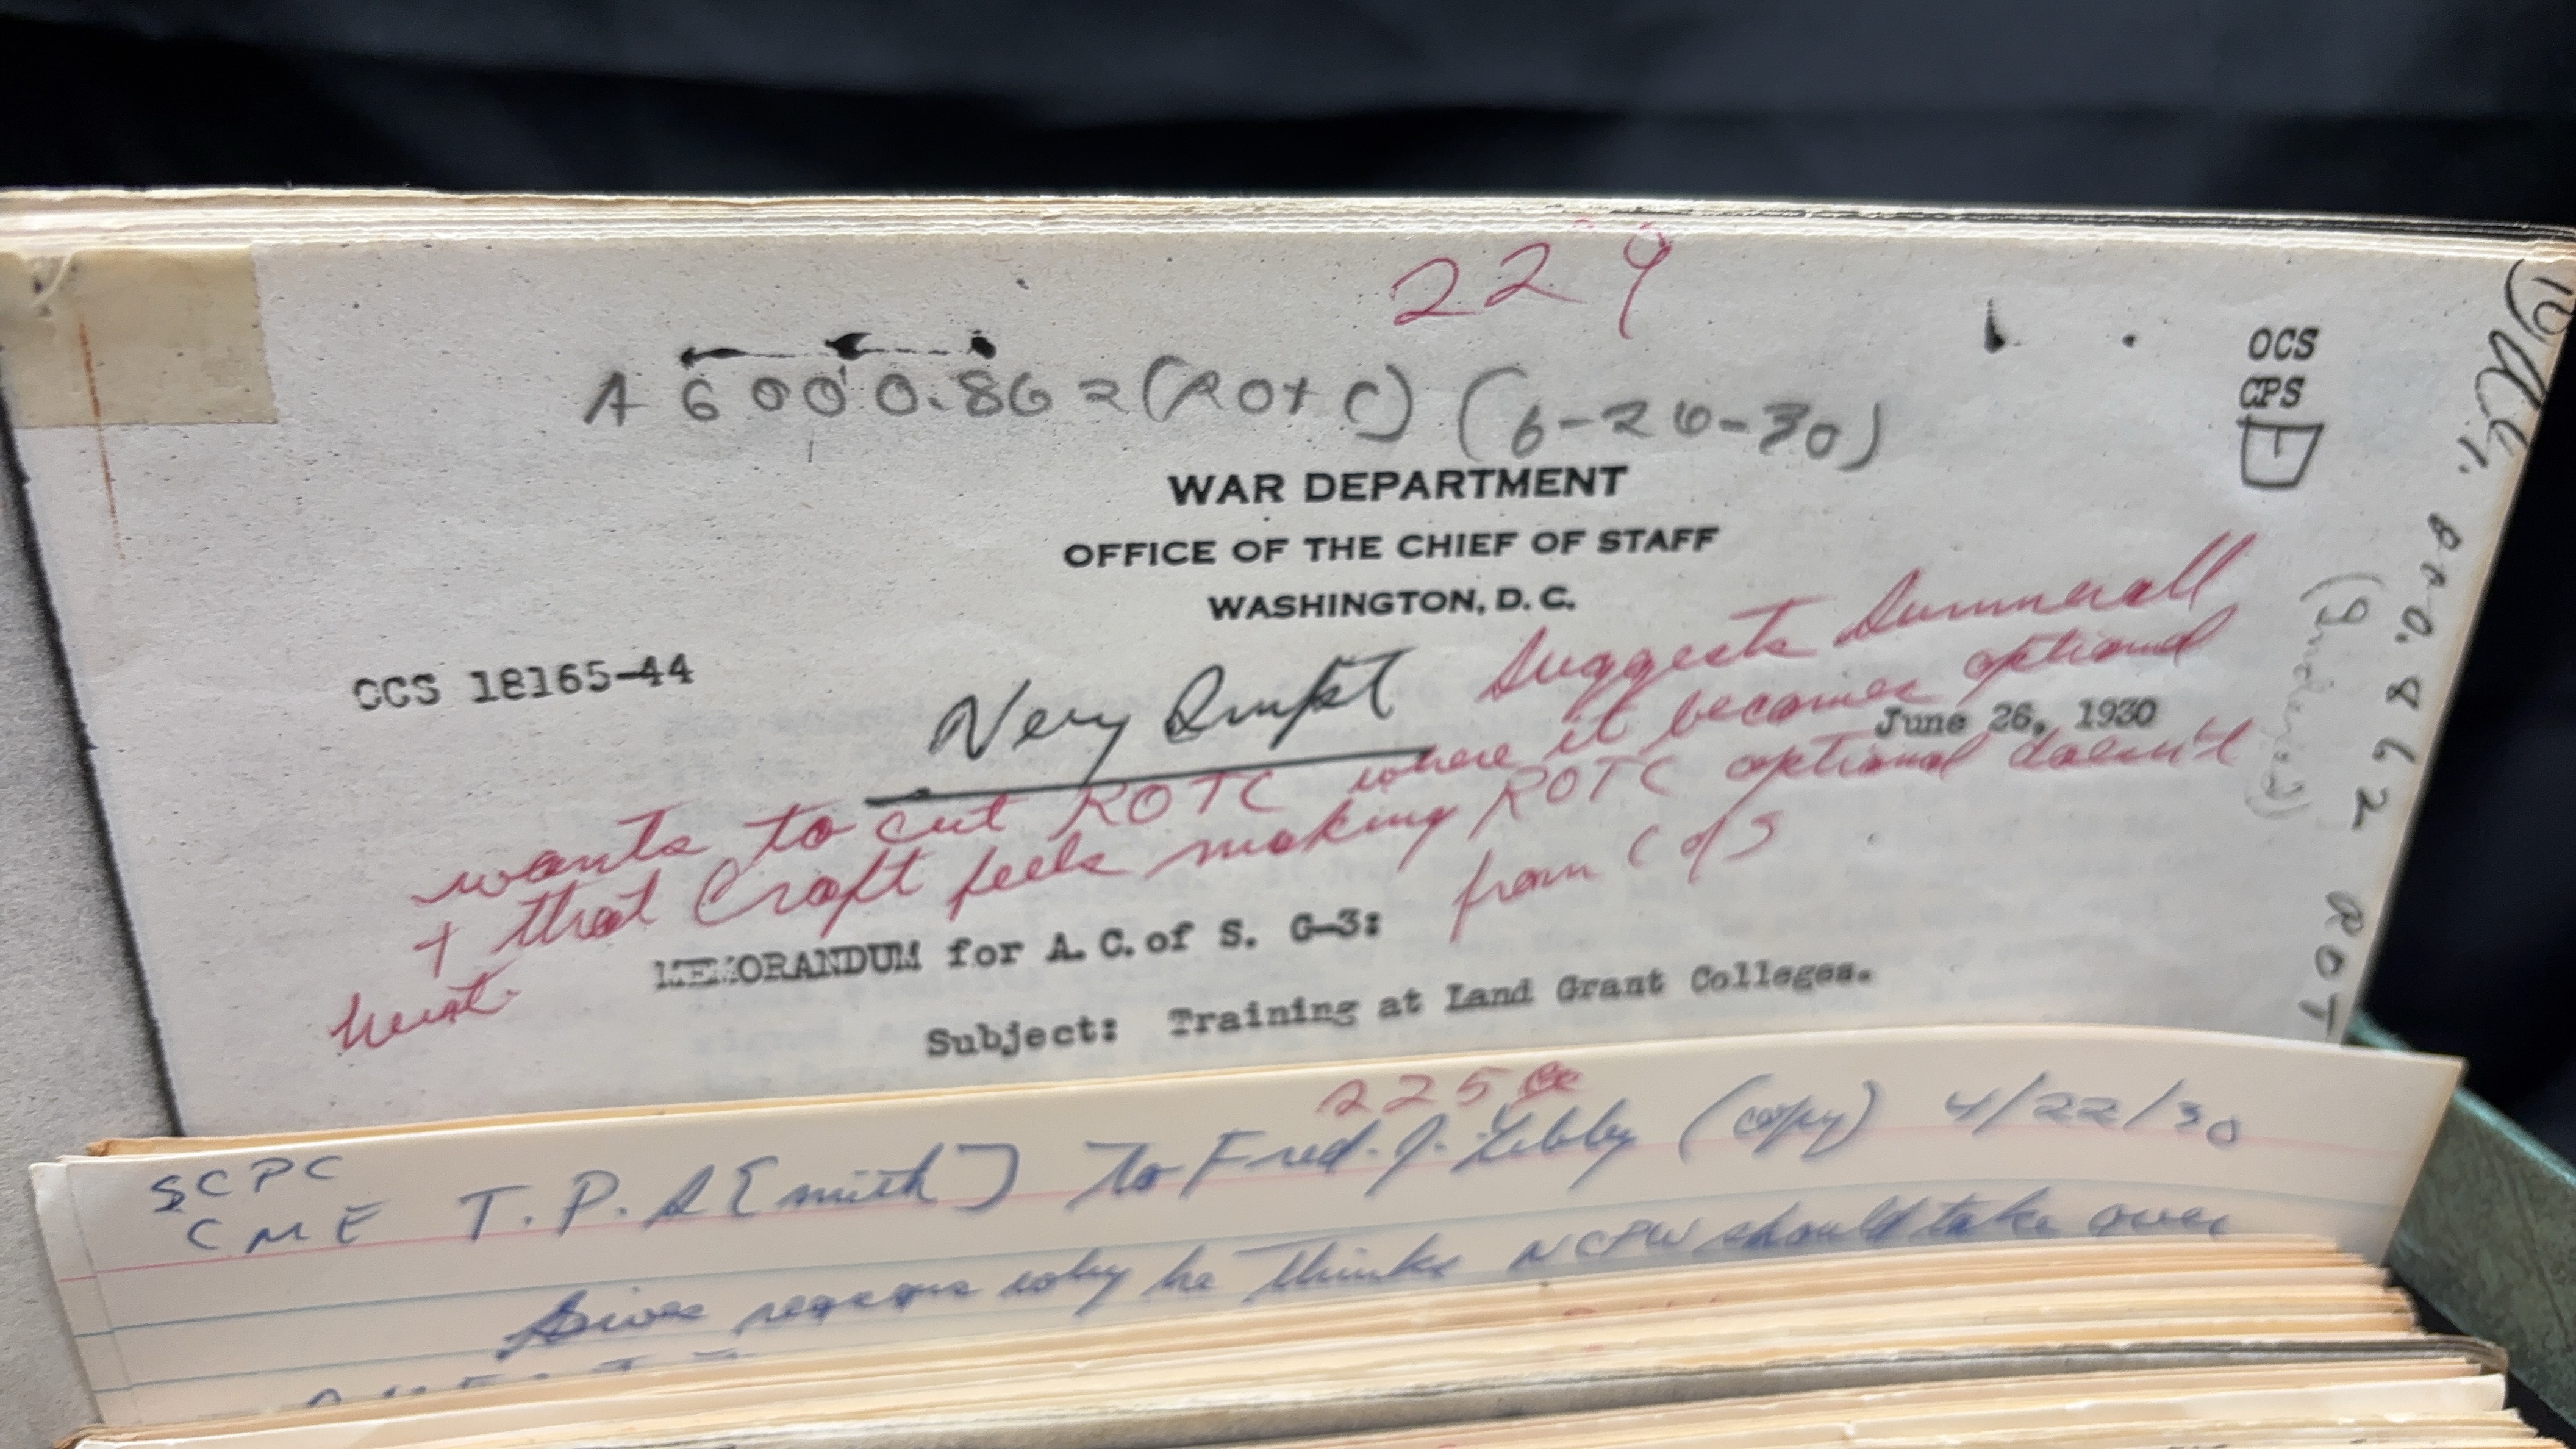 229
A 6000.862 (ROTC) (6-26-30)
OCS
CPS
WAR DEPARTMENT
OFFICE OF THE CHIEF OF STAFF
WASHINGTON, D. C.
OCS 18165-44
Very Impt
June 26, 1930
Suggests Summerall
wants to cut ROTC where it becomes optional
+ that Craft feels making ROTC optional doesn't
hurt.
from C of S
MEMORANDUM for A. C. of S. G-3:
Subject: Training at Land Grant Colleges.
000.862 ROT
225
SCPC
CME T.P.S[mith] to Fred. J. Libby (copy) 4/22/30
Gives reasons why he thinks NCPW should take over